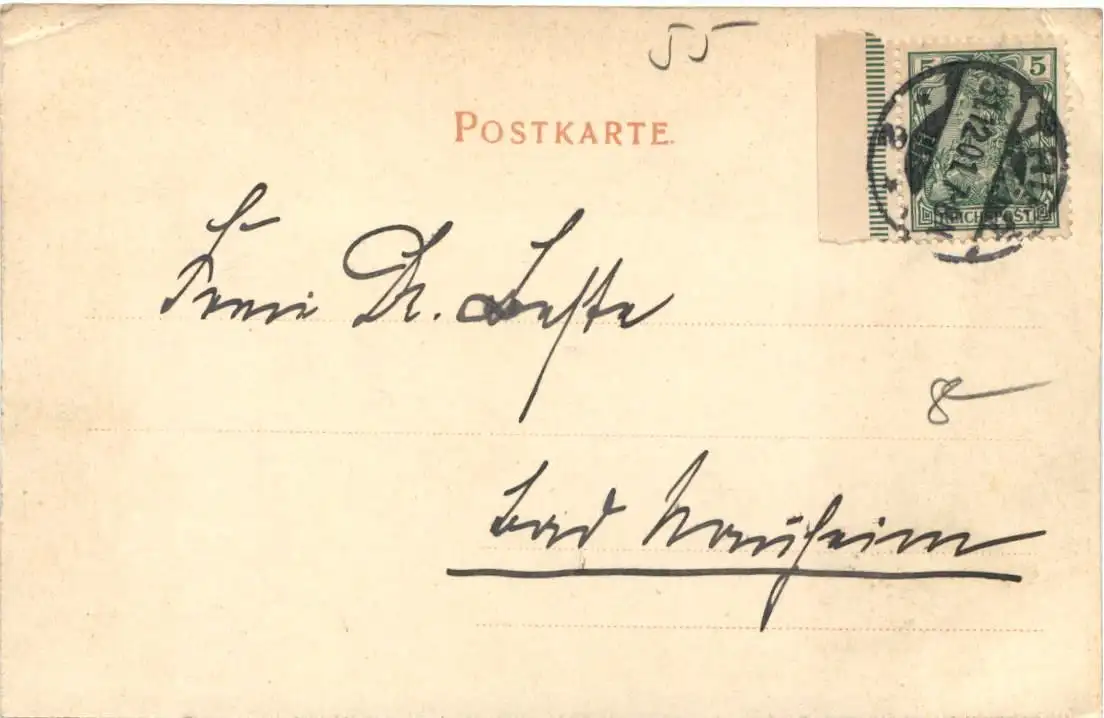 55
POSTKARTE.
5 5
REICHSPOST
31.12.01. 7-8 N
Frau Dr.
8
Bad Nauheim